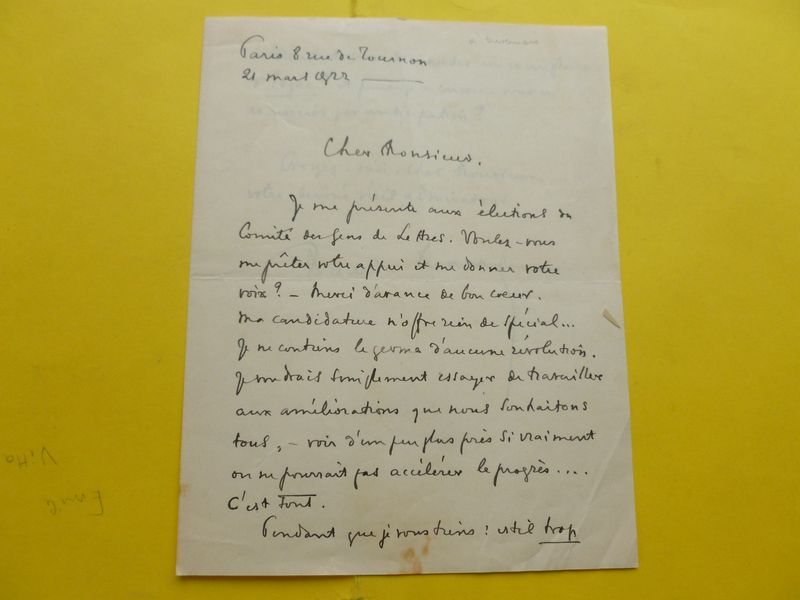 Paris 8 rue de Tournon
21 mars 1922
Cher Monsieur.
Je me présente aux élections du
Comité des Gens de Lettres. Voulez-vous
me prêter votre appui et me donner votre
voix? – Merci d'avance de bon cœur.
Ma candidature n'offre rien de spécial...
Je ne contiens le germe d'aucune révolution.
Je voudrais simplement essayer de travailler
aux améliorations que nous souhaitons
tous, – voir d'un peu plus près si vraiment
on ne pourrait pas accélérer le progrès....
C'est tout.
Pendant que je vous tiens: est-il trop
Emile
Vitta